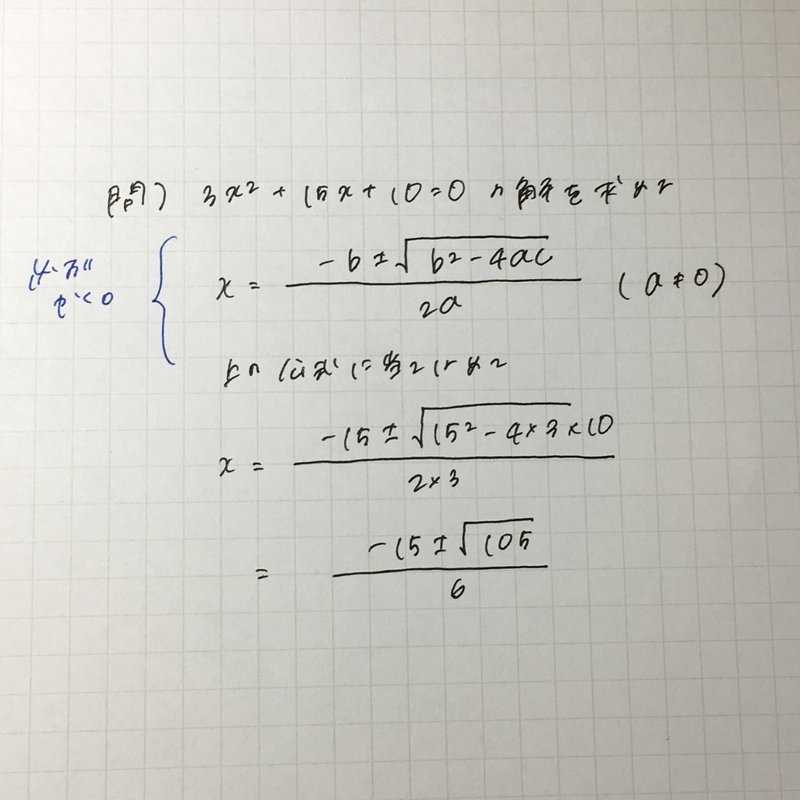 問) 3x² + 15x + 10 = 0 の解を求めよ
x = (-b ± √(b² - 4ac)) / 2a (a ≠ 0)
上の公式に当てはめて
x = (-15 ± √(15² - 4×3×10)) / (2×3)
= (-15 ± √105) / 6